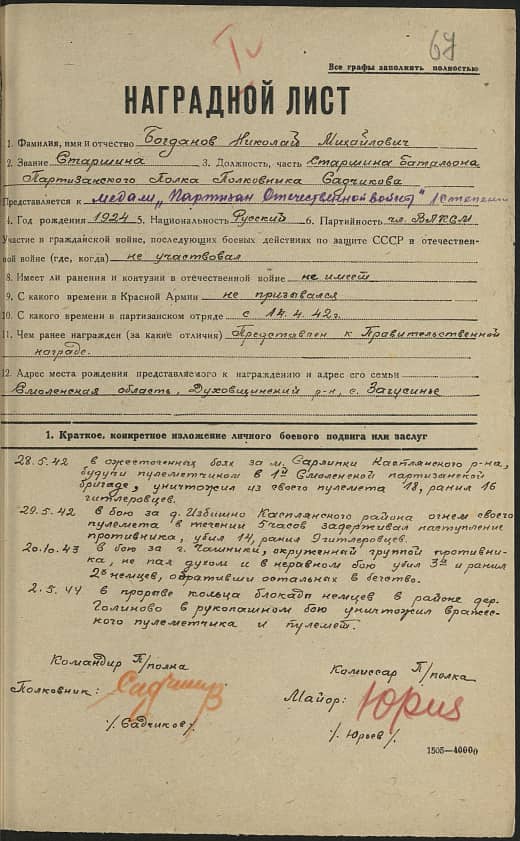 IV
67
Все графы заполнить полностью
НАГРАДНОЙ ЛИСТ
1. Фамилия, имя и отчество Богданов Николай Михайлович
2. Звание Старшина 3. Должность, часть Старшина батальона
Партизанского Полка Полковника Садчикова
Представляется к медали „Партизан Отечественной войны" I степени
4. Год рождения 1924 5. Национальность Русский 6. Партийность чл. ВЛКСМ
Участие в гражданской войне, последующих боевых действиях по защите СССР и отечествен-
ной войне (где, когда) не участвовал
8. Имеет ли ранения и контузии в отечественной войне не имеет
9. С какого времени в Красной Армии не призывался
10. С какого времени в партизанском отряде с 14.4.42г.
11. Чем ранее награжден (за какие отличия) Представлен к Правительственной
награде.
12. Адрес места рождения представляемого к награждению и адрес его семьи
Смоленская область, Духовщинский р-н, с. Загусинье
1. Краткое, конкретное изложение личного боевого подвига или заслуг
28.5.42 в ожесточенных боях за м. Сарлипки Касплянского р-на,
будучи пулеметчиком в 1й Смоленской партизанской
бригаде, уничтожил из своего пулемета 18, ранил 16
гитлеровцев.
29.5.42 в бою за д. Избишно Касплянского района огнем своего
пулемета в течении 5 часов задерживал наступление
противника, убил 14, ранил 9 гитлеровцев.
20.10.43 в бою за г. Чашники, окруженный группой противни-
ка, не пал духом и в неравном бою убил 3х и ранил
2х немцев, обративши остальных в бегство.
2.5.44 в прорыве кольца блокады немцев в районе дер.
Голиново в рукопашном бою уничтожил вражес-
кого пулеметчика и пулемет.
Командир П/полка
Полковник: Садчиков
/Садчиков/.
Комиссар П/полка
Майор: Юрьев
/Юрьев/.
1505—40000